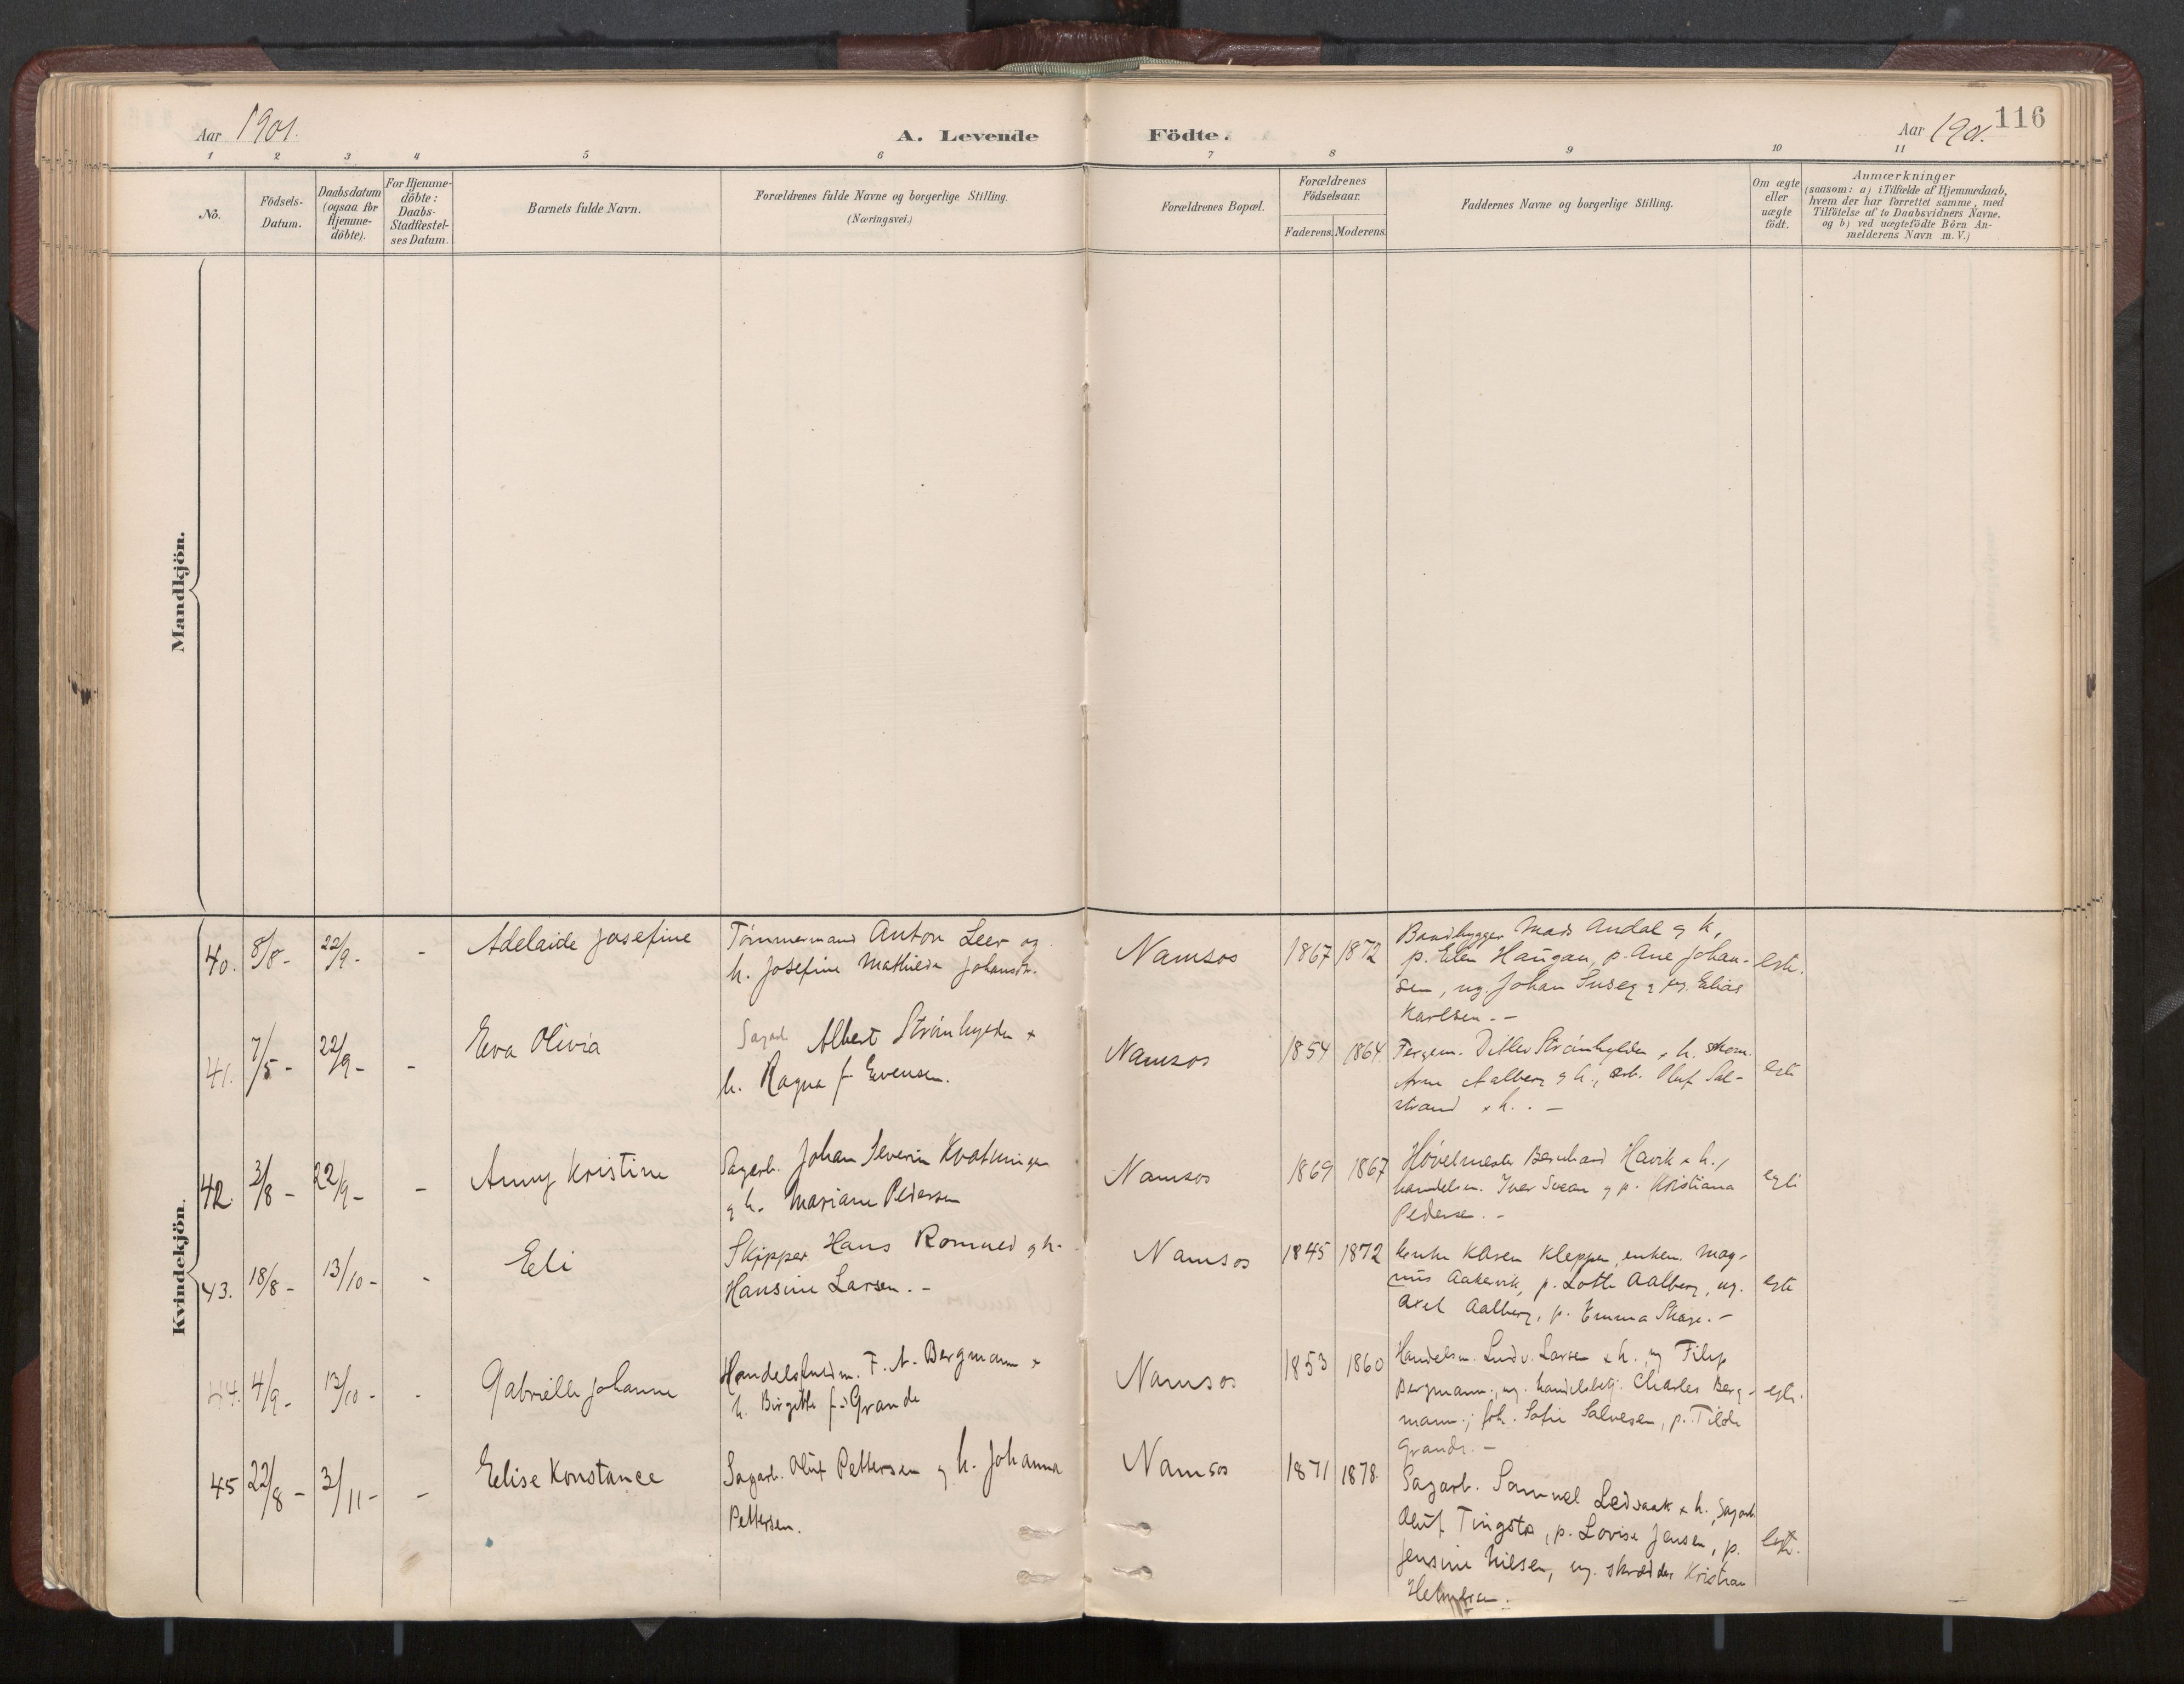 Aar 1901.
A. Levende Födte.
Aar 1901.
116
1 2 3 4 5 6 7 8 9 10 11
No.
Födsels-
Datum.
Daabsdatum
(ogsaa for
Hjemme-
döbte).
For Hjemme-
döbte:
Daabs-
Stadfestel-
ses Datum.
Barnets fulde Navn.
Forældrenes fulde Navne og borgerlige Stilling.
(Næringsvei.)
Forældrenes Bopæl.
Forældrenes
Födselsaar.
Faderens. Moderens.
Faddernes Navne og borgerlige Stilling.
Om ægte
eller
uægte
födt.
Anmærkninger
(saasom: a) i Tilfælde af Hjemmedaab,
hvem der har forrettet samme, med
Tilföielse af to Daabsvidners Navne,
og b) ved uægtefödte Börn An-
melderens Navn m. V.)
Mandkjön.
Kvindekjön.
40. 8/8 - 22/9 - -
Adelaide Josefine
Tömmermand Anton Leer og
h. Josefine Mathilde
Namsos
1867 1872
Mads Andal & h,
p. Elen Haugan, p. Ane Johan-
sen, ug. Johan & ug. Elias
Karlsen. -
41. 7/5 - 22/9 - -
Eva Olivia
Albert Strömhylden &
h. Ragna f. Evensen.
Namsos
1854 1864.
Strömhylden & h.
Arne Aalberg & h., arb. Oluf Sal-
strand & h. . -
42. 3/8 - 22/9 - -
Anny Kristine
Sagarb. Johan Severin
& h. Mariane Pedersen
Namsos
1869 1867
Hövelmester Bernhard Havik & h.,
handelsm. Iver & p. Kristiana
Pederse. -
43. 18/8 - 13/10 - -
Eli
Skipper Hans Romued & h.
Hansine Larsen. -
Namsos
1845 1872
Klaren Kleppen, enkem. Mag-
nus Aakervik, p. Lotte Aalberg, ug.
Axel Aalberg, p. Emma Skage. -
44. 4/9 - 13/10 - -
Gabrielle Johanne
F. A. Bergmann &
h. Birgitte f. Grande
Namsos
1853 1860
Handelsm. Ludv. Larsen & h., ug Filip
Bergmann, ug. handelsbetj. Charles Berg-
mann, frk. Sofie Salvesen, p. Tilda
Grande. -
45 22/8 - 3/11 - -
Elise Konstance
Sagarb. Oluf Pettersen & h. Johanna
Pettersen.
Namsos
1871 1878.
Sagarb. Samuel Ledsaak & h., Sagarb.
Oluf Tingstø, p. Lovise Jensen, p.
Jensine Nilsen, ug. skrædder Kristian